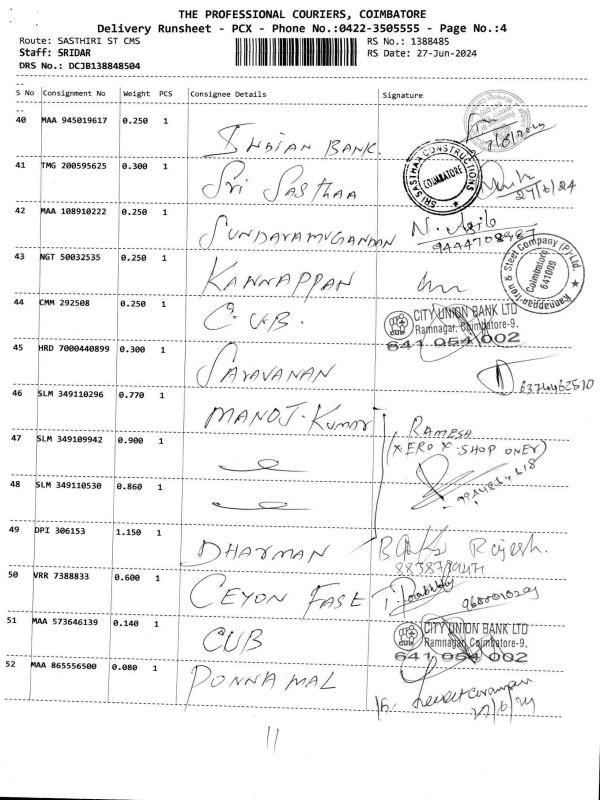 THE PROFESSIONAL COURIERS, COIMBATORE
Delivery Runsheet - PCX - Phone No.:0422-3505555 - Page No.:4
Route: SASTHIRI ST CMS RS No.: 1388485
Staff: SRIDAR RS Date: 27-Jun-2024
DRS No.: DCJB138848504
S No Consignment No Weight PCS Consignee Details Signature
40 MAA 945019617 0.250 1
INDIAN BANK
41 TMG 200595625 0.300 1
SRI SASTHAA
SRI SASTHAA CONSTRUCTIONS
COIMBATORE
27/6/24
42 MAA 108910222 0.250 1
SUNDARAMUGANDAN
9444708987
43 NGT 50032535 0.250 1
KANNAPPAN
Kannappan Iron & Steel Company (P) Ltd.
Coimbatore
641009
44 CMM 292508 0.250 1
C.U.B.
CITY UNION BANK LTD
Ramnagar, Coimbatore-9.
641 054 002
45 HRD 7000440899 0.300 1
SARAVANAN
6374462510
46 SLM 349110296 0.770 1
MANOJ-KUMAR
RAMESH
(XEROX SHOP ONER)
47 SLM 349109942 0.900 1
48 SLM 349110530 0.860 1
49 DPI 306153 1.150 1
DHARMAN
Rajesh.
50 VRR 7388833 0.600 1
CEYON FASE
51 MAA 573646139 0.140 1
CUB
CITY UNION BANK LTD
Ramnagar, Coimbatore-9.
641 054 002
52 MAA 865556500 0.080 1
PONNAMAL
27/6/24